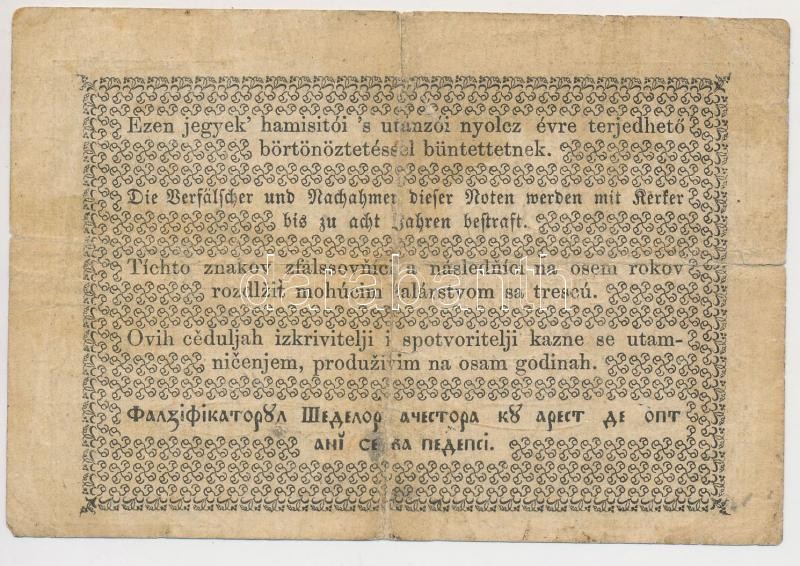 Ezen jegyek' hamisitói 's utánzói nyolcz évre terjedhető
börtönöztetéssel büntettetnek.
Die Verfälscher und Nachahmer dieser Noten werden mit Kerker
bis zu acht Jahren bestraft.
Tíchto znakov zfálssovníci a následníci na osem rokov
rozdlžit mohúcim žalárstvom sa trescú.
Ovih cėduljah izkrivitelji i spotvoritelji kazne se utam-
ničenjem, produživim na osam godinah.
Фалꙁіфікаторꙋл Шеделор ачестора кꙋ арест де опт
анĭ се ва педепсі.
darabanth